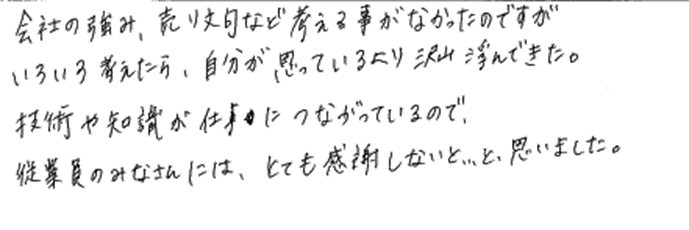 会社の強み、売り文句など考える事がなかったのですが
いろいろ考えたら、自分が思っているより沢山浮んできた。
技術や知識が仕事につながっているので、
従業員のみなさんには、とても感謝しないと…と、思いました。